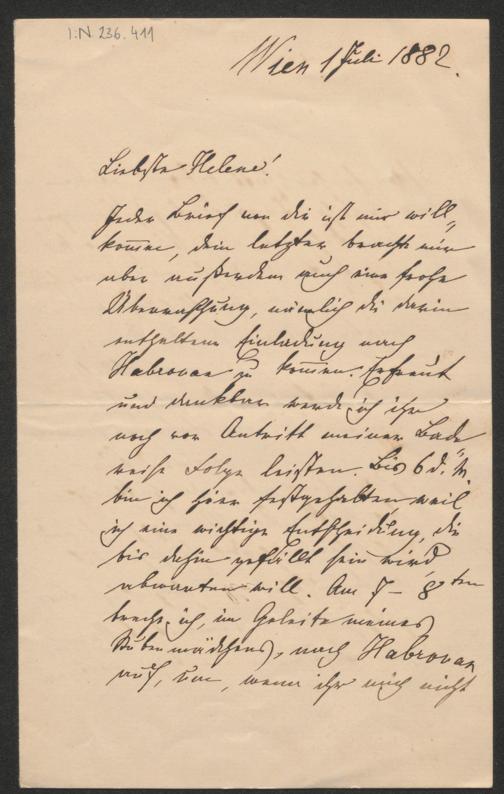 I.N. 236.411
Wien 1 Juli 1882.
Liebste Helene!
Jeder Brief von dir ist mir will„
komen, dein letzter brachte mir
aber außerdem auch eine frohe
Überraschung, nämlich die darin
enthaltene Einladung nach
Habrovan zu komen. Erfreut
und dankbar werde ich ihr
noch vor Antritt meiner Bade„
reise Folge leisten. Bis 6 d. M.
bin ich hier festgehalten, weil
ich eine wichtige Entscheidung, die
bis dahin gefällt sein wird
abwarten will. Am 7 – 8ten
breche ich, im Geleite meines
Stubenmädchens, nach Habrovan
auf, um, wenn ihr mich nicht